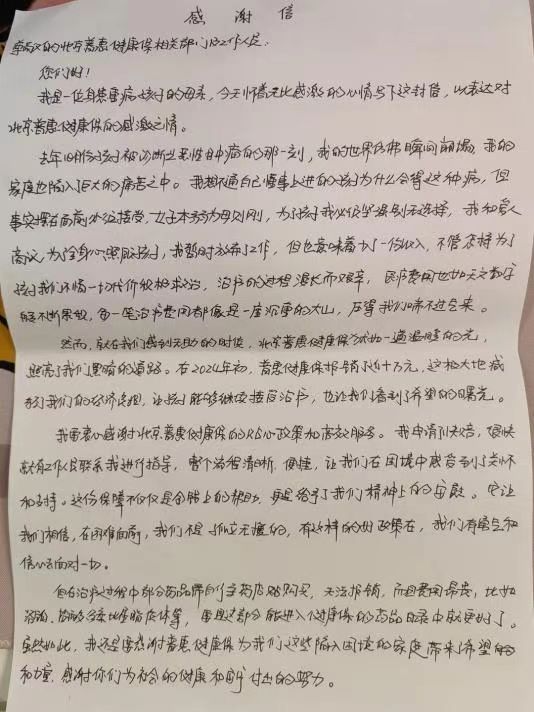 感谢信
尊敬的北京普惠健康保相关部门及工作人员:
您们好!
我是一位身患重病孩子的母亲,今天怀着无比感激的心情写下这封信,以表达对
北京普惠健康保的感激之情。
去年10月份孩子被诊断出恶性血病的那一刻,我的世界仿佛瞬间崩塌,我的
家庭也陷入了巨大的痛苦之中。我想不通自己懂事上进的孩子为什么会得这种病,但
事实摆在面前必须接受,女子本弱为母则刚,为了孩子我必须坚强别无选择,我和爱人
商议,为了全身心照顾孩子,我暂时放弃了工作,但也意味着少了一份收入,不管怎样为了
孩子我们不惜一切代价积极求治,治疗的过程漫长而艰辛,医疗费用也如天文数字
般不断累积,每一笔治疗费用都像是一座沉重的大山,压得我们喘不过气来。
然而,就在我们感到无助的时候,北京普惠健康保就如一道温暖的光,
照亮了我们黑暗的道路。在2024年初,普惠健康保报销了近十万元,这极大地减
轻了我们的经济负担,让孩子能够继续接受治疗,也让我们看到了希望的曙光。
我要衷心感谢北京普惠健康保的贴心政策和高效服务。我申请以后,很快
就有工作人员联系我进行指导,整个流程清晰、便捷,让我们在困境中感受到了关怀
和支持。这份保障不仅仅是金钱上的帮助,更是给了我们精神上的安慰。它让
我们相信,在困难面前,我们不是孤立无援的,有这样的好政策在,我们有勇气和
信心去面对一切。
但在治疗过程中部分药品需自行去药店购买,无法报销,而且费用昂贵,比如
脂质体等,要是这部分能进入健康保的药品目录中就更好了。
虽然如此,我还是要感谢普惠健康保为我们这些陷入困境的家庭带来了希望
和力量,感谢你们为社会的健康和谐付出的努力。